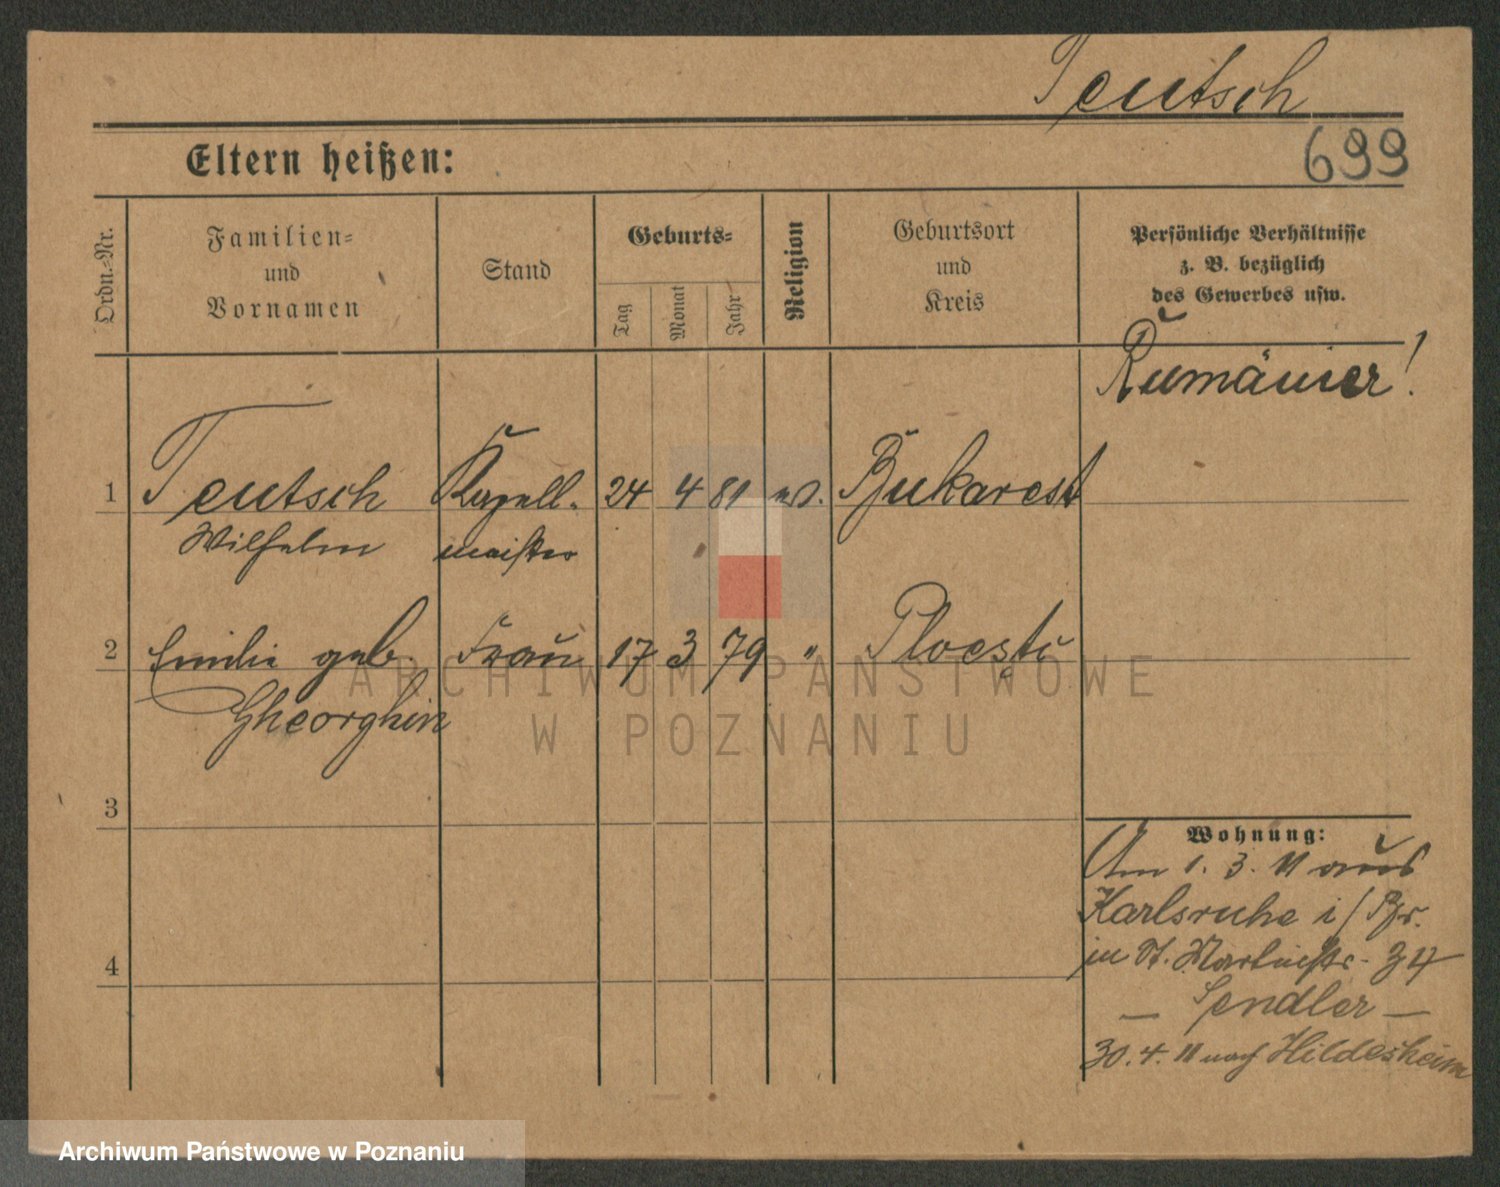 Teutsch
699
Eltern heißen:
Ordn.-Nr.
Familien-
und
Vornamen
Stand
Geburts-
Tag
Monat
Jahr
Religion
Geburtsort
und
Kreis
Persönliche Verhältnisse
z. B. bezüglich
des Gewerbes usw.
Rumänier!
1 Teutsch Kapell- 24 4 81 ev. Bukarest
Wilhelm meister
2 Emilie geb. Frau 17 3 79 " Ploesti
Gheorghin
3
4
Wohnung:
Am 1. 3. 11 aus
Karlsruhe i/
in St. Martinstr. 34
— Sendler —
30. 4. 11 nach Hildesheim
ARCHIWUM PAŃSTWOWE
W POZNANIU
Archiwum Państwowe w Poznaniu